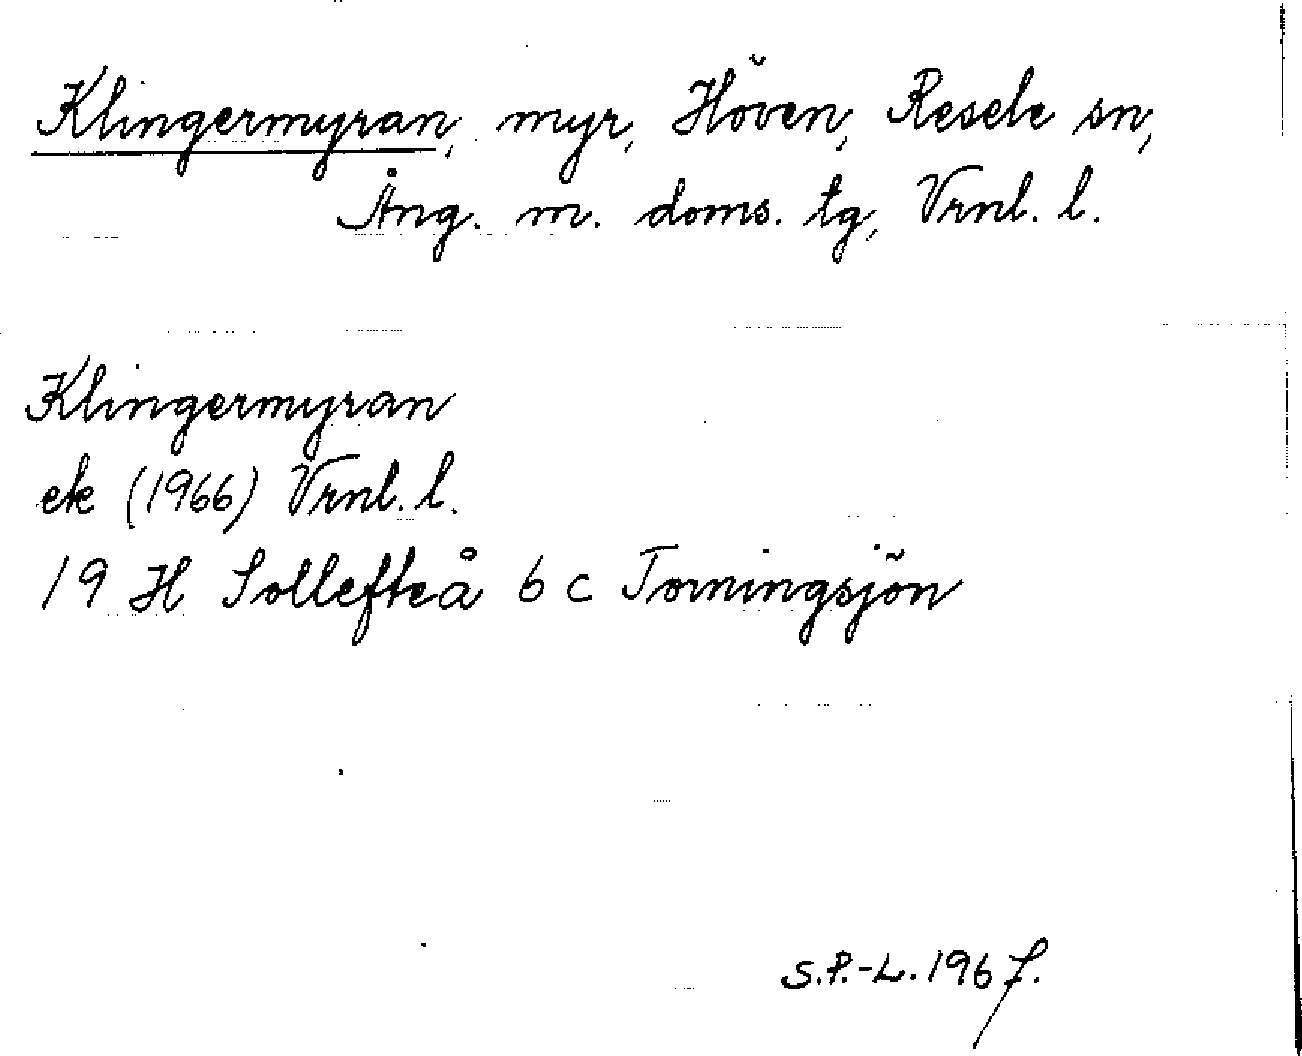 Klingermyran, myr, Höven, Resele sn,
Ång. m. doms. tg, Vrnl. l.
Klingermyran
ek (1966) Vrnl. l.
19 H Sollefteå 6 c Torningsjön
S.P.-L. 1967.